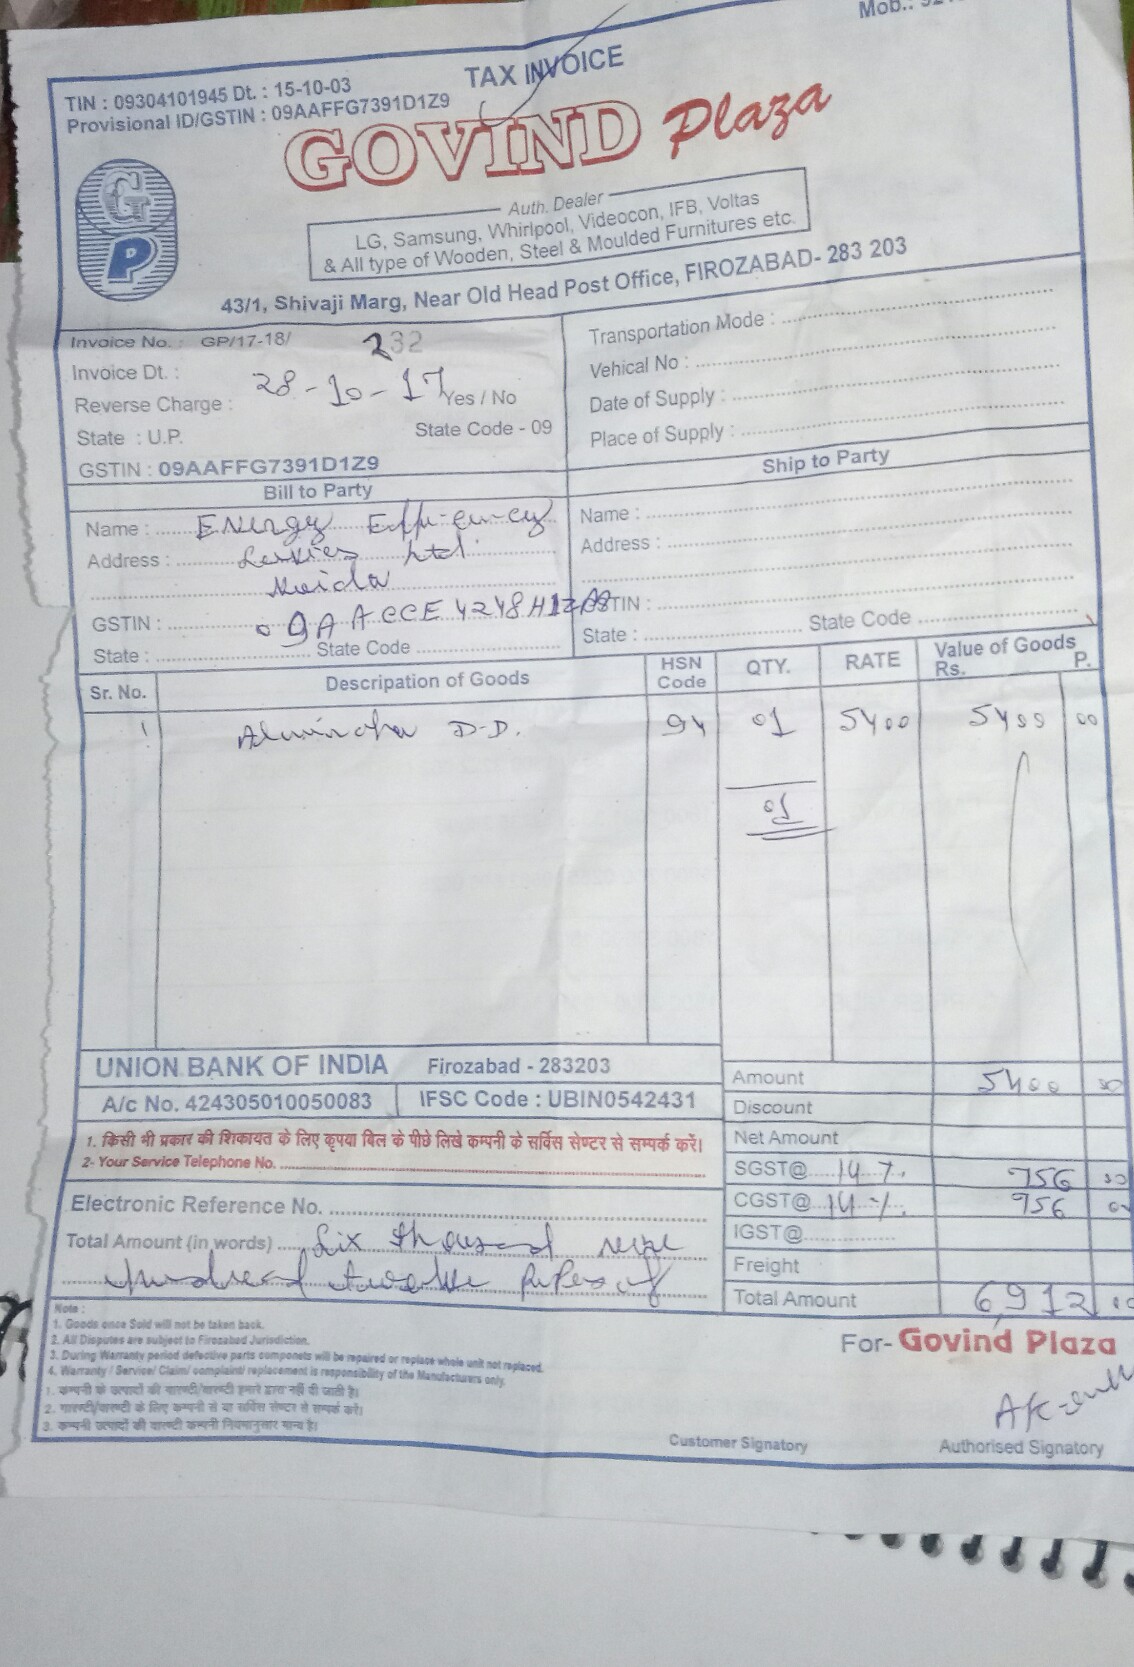 Mob.:
TAX INVOICE
TIN : 09304101945 Dt. : 15-10-03
Provisional ID/GSTIN : 09AAFFG7391D1Z9
GP
GOVIND Plaza
Auth. Dealer
LG, Samsung, Whirlpool, Videocon, IFB, Voltas
& All type of Wooden, Steel & Moulded Furnitures etc.
43/1, Shivaji Marg, Near Old Head Post Office, FIROZABAD- 283 203
Invoice No. : GP/17-18/ 232
Invoice Dt. : 28-10-17
Reverse Charge : Yes / No
State : U.P. State Code - 09
GSTIN : 09AAFFG7391D1Z9
Transportation Mode :
Vehical No :
Date of Supply :
Place of Supply :
Bill to Party
Name : Energy Efficiency
Address : Services Ltd.
Noida
GSTIN : 09AACCE4248H1Z
State : State Code
Ship to Party
Name :
Address :
GSTIN :
State : State Code
Sr. No. Descripation of Goods HSN Code QTY. RATE Value of Goods Rs. P.
1 Almirah D-D. 94 01 5400 5400 00
01
UNION BANK OF INDIA Firozabad - 283203
A/c No. 424305010050083 IFSC Code : UBIN0542431
1. किसी भी प्रकार की शिकायत के लिए कृपया बिल के पीछे लिखे कम्पनी के सर्विस सेण्टर से सम्पर्क करें।
2- Your Service Telephone No.
Electronic Reference No.
Total Amount (in words) Six thousand nine
hundred twelve Rupees
Amount 5400 00
Discount
Net Amount
SGST@ 14 % 756 00
CGST@ 14 % 756 00
IGST@
Freight
Total Amount 6912 00
Note :
1. Goods once Sold will not be taken back.
2. All Disputes are subject to Firozabad Jurisdiction.
3. During Warranty period defective parts componets will be repaired or replace whole unit not replaced.
4. Warranty / Service/ Claim/ complaint/ replacement is responsibility of the Manufacturers only.
1. कम्पनी के उत्पादों की गारण्टी/वारण्टी हमारे द्वारा नहीं दी जाती है।
2. गारण्टी/वारण्टी के लिए कम्पनी से या सर्विस सेण्टर से सम्पर्क करें।
3. कम्पनी उत्पादों की वारण्टी कम्पनी नियमानुसार मान्य है।
For- Govind Plaza
Customer Signatory Authorised Signatory